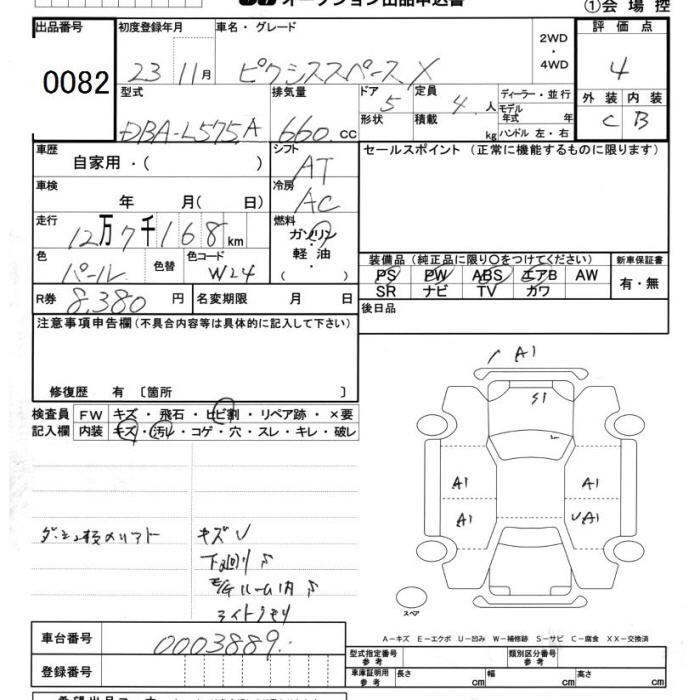 オークション出品申込書
①会場控
出品番号
0082
初度登録年月
23年11月
車名・グレード
ピクシススペース X
2WD
・
4WD
評価点
4
外装 内装
C B
型式
DBA-L575A
排気量
660 cc
ドア
5
形状
定員
4 人
積載
kg
ディーラー・並行
モデル
年式 年
ハンドル 左・右
車歴
自家用・( )
シフト
AT
セールスポイント (正常に機能するものに限ります)
車検
年 月( 日)
冷房
AC
走行
12万7千168km
燃料
ガソリン
・
軽油
( )
色
パール
色替
色コード
W24
装備品 (純正品に限り○をつけてください)
PS PW ABS エアB AW
SR ナビ TV カワ
新車保証書
有・無
R券 8,380 円
名変期限 月 日
後日品
注意事項申告欄(不具合内容等は具体的に記入して下さい)
修復歴 有 〔箇所 〕
検査員
記入欄
FW キズ・飛石・ヒビ割・リペア跡・×要
内装 キズ・汚レ・コゲ・穴・スレ・キレ・破レ
キズ
下回り
ルーム内
ライトクモリ
A1
S1
A1 A1
A1 A1
スペア
A-キズ E-エクボ U-凹み W-補修跡 S-サビ C-腐食 XX-交換済
車台番号 0003889
登録番号
型式指定番号
参考
類別区分番号
参考
車庫証明用
参考
長さ cm
幅 cm
高さ cm